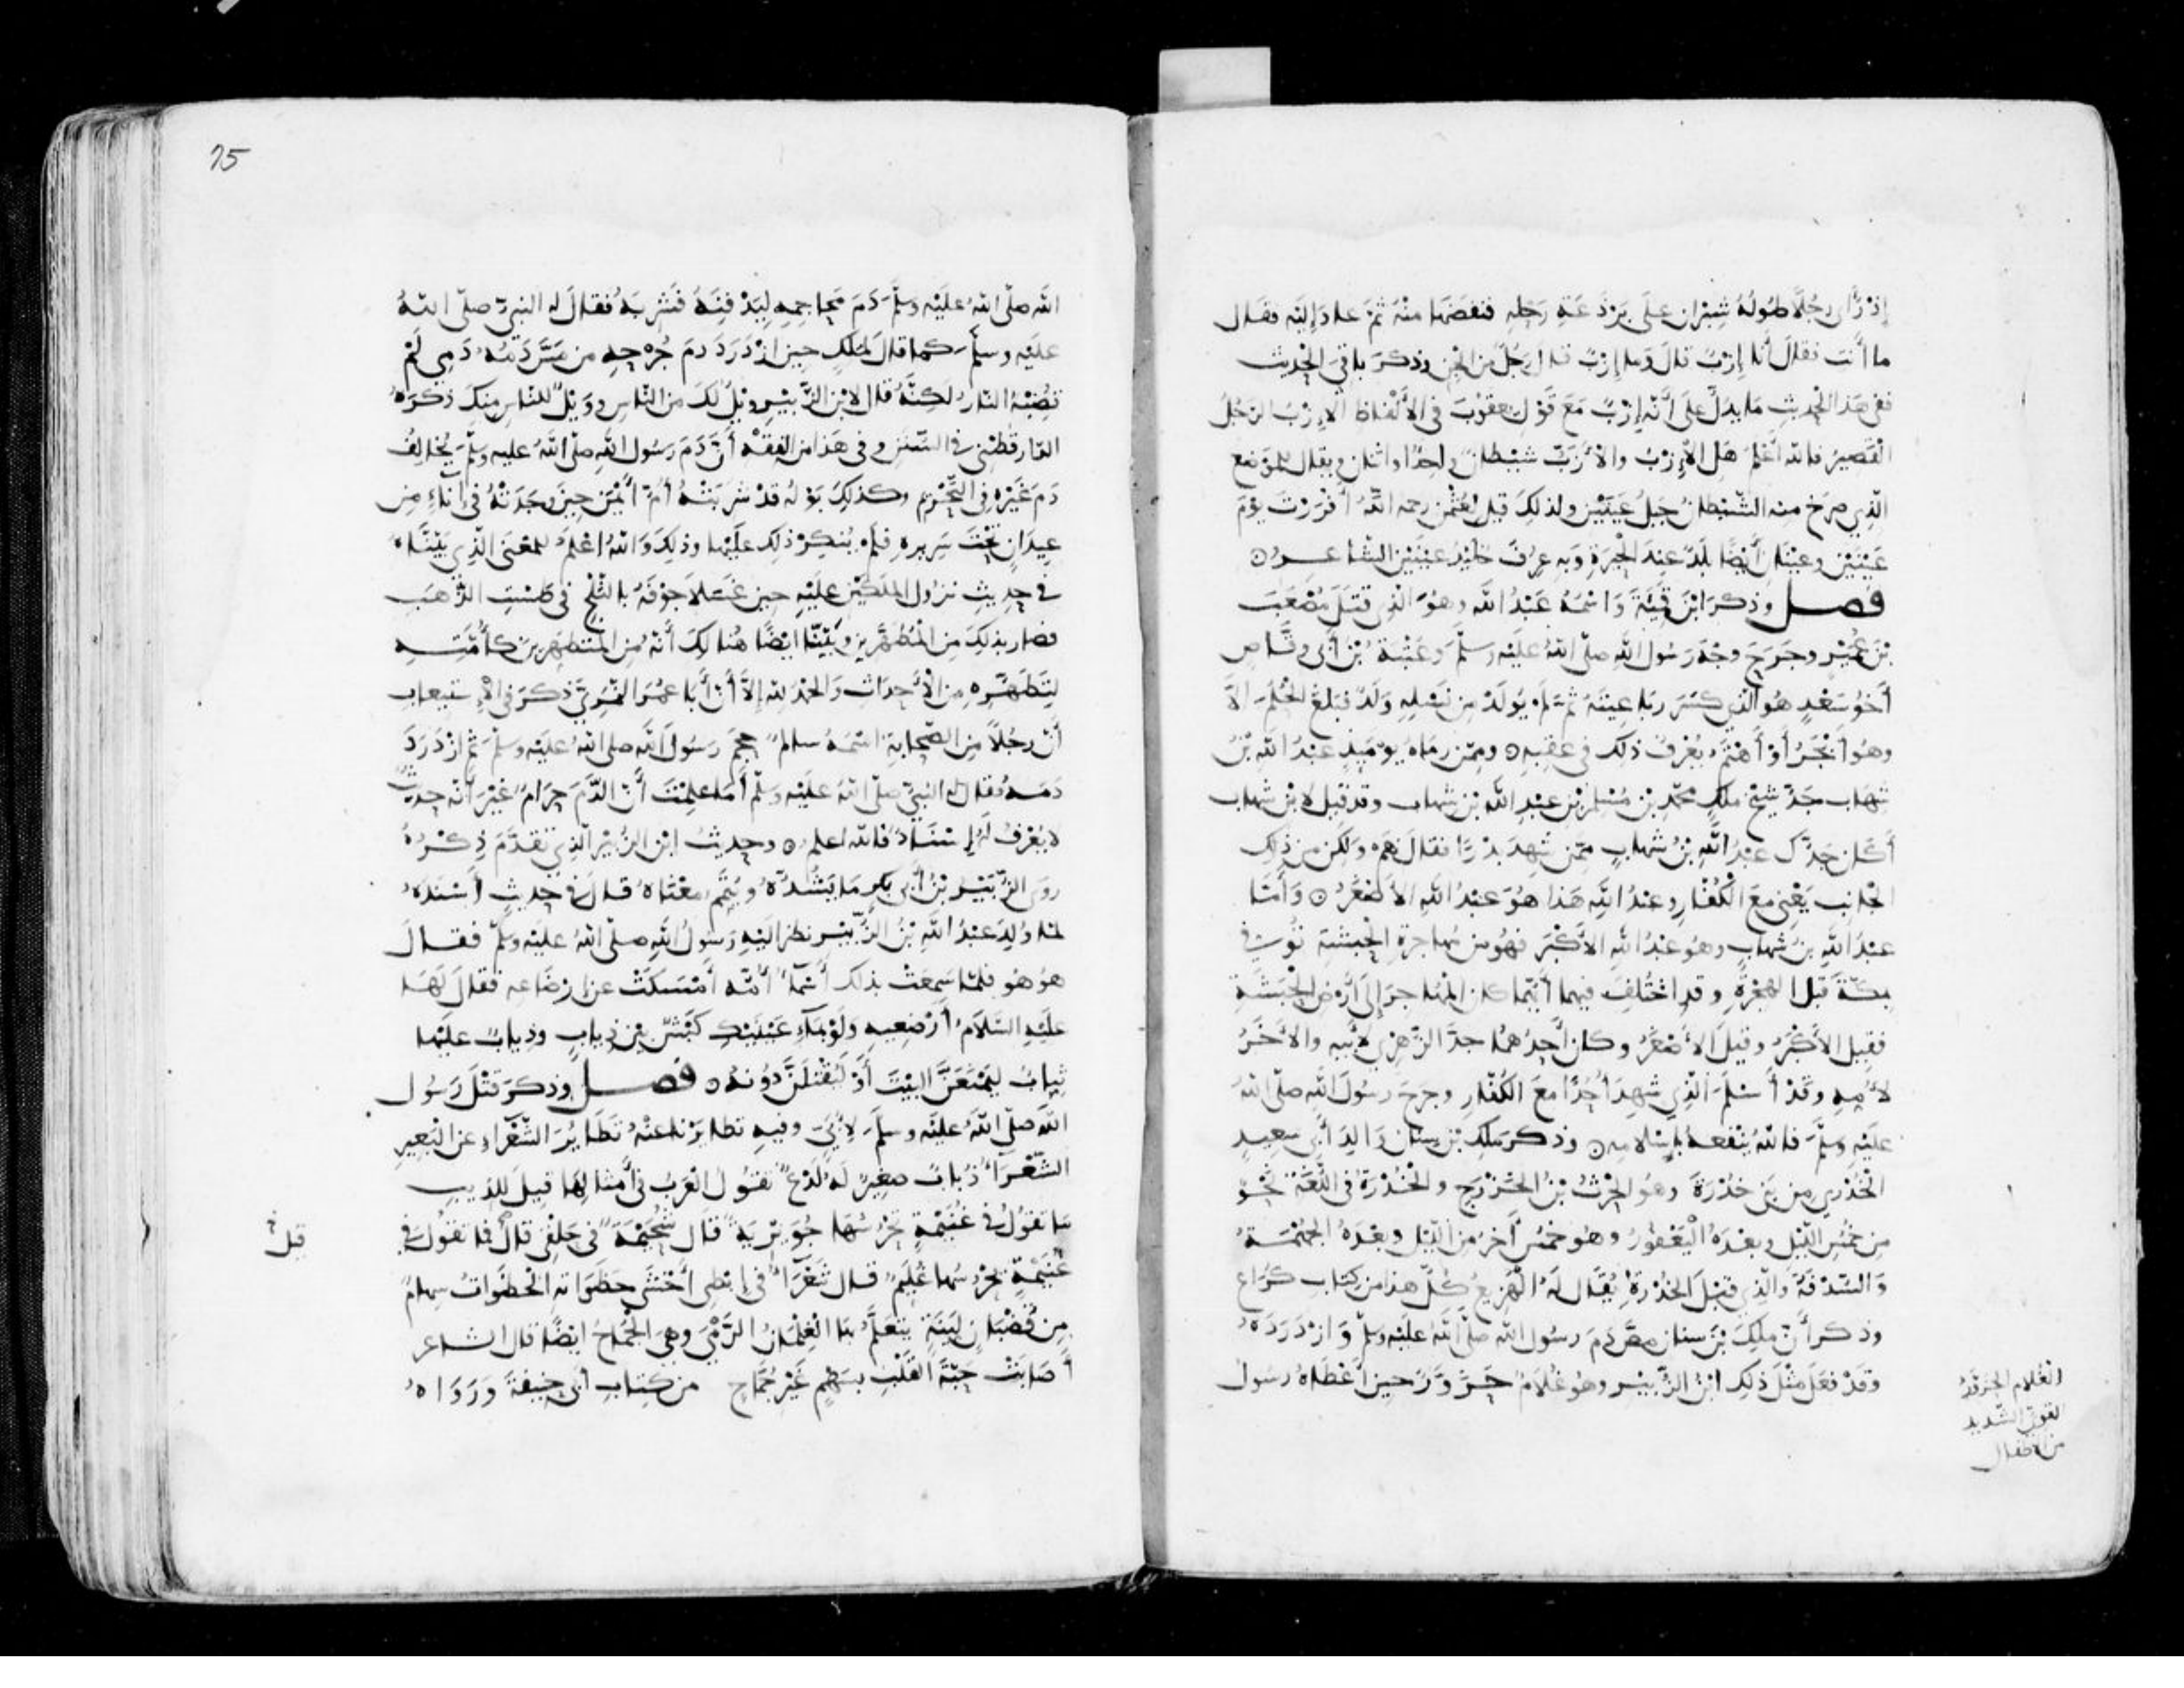 إِذْ رَأى رجُلًا طُولُهُ شِبْرانِ عَلَى بَرْذَعَةِ رَحْلِهِ فنفضَهَا منْهُ ثمّ عادَ إليْه فقَال
ما أَنتَ فقالَ أَنا إِزْبٌ قالَ وَما إِزْبٌ قال رجُلٌ من الجِنّ وذكرَ باقيَ الحَدِيث
ففى هَذا الحَدِيثِ مَا يدلّ على أَنّه إِزْبٌ مَعَ قَوْلِ يَعقوُبَ في الأَلْفاظ الإِزْبُ الرّجُلُ
القَصِيرُ فالله أَعْلمُ هَلِ الإِزْبُ والأَزَبّ شيْطانٌ واحِدٌ او اثنان ويقال للموْضع
الّذِي صرَخ منه الشّيْطانُ جَبلُ عَيْنَيْنِ ولذلكَ قيلَ لعُثْمٰن رحمه اللهُ أَفرَرْتَ يَوْمَ
عَيْنَيْنِ وعيْنَانِ أَيْضًا بَلَدٌ عندَ الحِيرَةِ وَبهِ عُرِفَ خُلَيْدُ عَيْنَيْنِ الشّاعِرُ
فصل وذكرَ ابْنَ قَمِئَةَ وَاسْمُهُ عَبْدُ الله وهُوَ الّذِي قتلَ مُصْعَبَ
بْنَ عُمَيْرٍ وجَرَحَ وجْهَ رَسُولِ اللهِ صلّى اللهُ عَليْه وسَلّمَ وَعتْبَةُ بْنُ أَبي وقّاصٍ
أَخُو سَعْدٍ هُو الّذِي كسَرَ رَبَاعِيَتَهُ ثمّ لَمْ يُولَدْ مِن نَسْلِهِ وَلَدٌ فبَلغَ الحُلُمَ إلاّ
وهُو أَبْخَرُ أَوْ أَهْتَمُ يُعْرَفُ ذلكَ في عَقِبِهِ وممّن رمَاهُ يوْمَئِذٍ عَبْدُ الله بْنُ
شِهاب جَدُّ شيْخِ ملكٍ محمّدِ بْنِ مُسْلِمِ بْنِ عبْدِ اللهِ بْنِ شهاب وقد قيلَ لابْن شهاب
أَكانَ جَدُّكَ عَبْدُ اللهِ بْنُ شهابٍ ممّن شَهِدَ بدْرًا فقالَ نَعَمْ ولكن من ذلكَ
الجانب يَعْني معَ الْكُفّارِ وعبْدُ الله هَذا هُوَ عَبْدُ الله الأَصْغَرُ وَأَمّا
عبْدُ اللهِ بنُ شِهابٍ وهُو عبْدُ الله الأَكْبَرُ فهُو من مُهاجرَةِ الحَبشَةِ تُوفي
بمكّةَ قَبْلَ الهجْرَةِ وقد اخْتُلِفَ فيهما أَيّهما كانَ المُهاجرَ إلى أَرْضِ الحَبَشَةِ
فقِيلَ الأَكبَرُ وقيلَ الأَصْغَرُ وكانَ أَحَدُهُما جدَّ الزّهْرِي لأَبيهِ والآخَرُ
لأُمِّهِ وقَدْ أَسْلَمَ الّذِي شَهِدَ أُحُدًا معَ الكُفّارِ وجرَحَ رسُولَ اللهِ صلّى اللهُ
عَليْهِ وسلّمَ فاللهُ يَنْفعهُ بإسْلامِهِ وذكرَ ملكَ بْنَ سِنان وَالِدَ أَبي سَعِيدٍ
الخُدْرِي من بَني خُدْرَةَ وهُو الحٰرثُ بْنُ الخَزْرَجِ والخُدْرَةُ في اللّغَةِ نَحْوٌ
من خُمُسِ اللّيْلِ وبعْدَهُ اليَعْفُورُ وهُو خمُسٌ آخَرُ من اللّيْلِ وبعْدَهُ الجُهْمَةُ
وَالسّدْفَةُ والّذِي قبْلَ الخُدْرَةِ يُقَالُ لَهُ الهَزِيعُ كُلّ هذا من كِتَاب كُرَاع
وذكرَ أَنّ ملِكَ بْنَ سنان مصَّ دَمَ رسُول الله صلّى اللهُ عَليْه وسلّمَ وَازْدَرَدَهُ
وقدْ فعَلَ مثْلَ ذلكَ ابْنُ الزّبيْرِ وهُو غُلامٌ حَزَوَّرٌ حينَ أَعْطَاهُ رسُولُ
الغُلام الحزوّر
القوىّ الشّديد
من الاطفال
75
الله صلّى اللهُ عَليْه وسلّمَ دَمَ مَحَاجِمِهِ لِيَدْفِنَهُ فَشَرِبَهُ فقالَ له النبيّ صلّى اللهُ
عليْه وسلّمَ كما قالَ لمٰلكٍ حِينَ ازْدَرَدَ دمَ جُرْحِهِ من مَسَّ دَمُهُ دَمِي لَمْ
تُصِبْهُ النّارُ لكِنّهُ قال لابْن الزّبيْرِ ويْلٌ لكَ من النّاسِ ووَيْلٌ للنّاس منكَ ذكرَهُ
الدّارقُطْني في السّنَن وفي هَذا من الفقْه أَنّ دَمَ رَسُول اللهِ صلّى اللهُ عليه وسلّمَ يُخالِفُ
دَمَ غَيْرِهِ فِي التّحْرِيمِ وكذلكَ بَوْلُهُ قَدْ شَرِبَتْهُ أُمّ أَيْمَن حِينَ وجَدَتْهُ في إِناءٍ من
عِيدَانٍ تَحْتَ سَرِيرِهِ فلَمْ يُنكِرْ ذلك عَلَيْها وذلكَ وَاللهُ اعْلَمُ للمعْنَى الّذِي بَيّنّاهُ
في حَدِيثِ نزُول المَلكيْن عَليْهِ حِين غَسَلا جَوْفَهُ بالثّلْجِ في طَسْتِ الذّهَبِ
فصار بذلكَ مِن المُتَطَهِّرِين وبَيّنّا ايْضًا هُنالِكَ أَنّهُ مِن المُتطهِّرِينَ كأُمَّتِهِ
لتَطَهُّرِهِ مِن الأَحدَاثِ وَالحَمْدُ للهِ إلاَّ أَنّ أَبا عُمَرَ النّمرِيّ ذكرَ في الإِستيعاب
أَنّ رجُلاً مِن الصّحابَةِ اسْمُهُ سالمٌ حجَمَ رَسُولَ اللهِ صلى اللهُ عَليْه وسلّمَ ثمّ ازْدَرَدَ
دَمَهُ فقالَ له النبيّ صلّى اللهُ عَلَيْه وسَلّم أَمَا علِمْتَ أَنّ الدّمَ حَرَامٌ غيْرَ أَنّه حدِيثٌ
لا يُعْرَفُ لَهُ إِسْنَادٌ فالله اعلم وحدِيثُ ابْن الزّبيْرِ الّذِي تقدّمَ ذِكْرُهُ
روَى الزّبَيْرُ بْنُ أَبي بكرٍ مَا يَشُدُّهُ ويُتَمِّمُ معْنَاهُ قالَ في حدِيثٍ أَسْنَدَهُ
لمّا وُلِدَ عَبْدُ اللهِ بْنُ الزّبيْرِ نظر اليْه رَسُولُ اللهِ صلّى اللهُ عليْه وسلّمَ فقالَ
هُوَ هُو فلمّا سَمِعَتْ بذلك أَسْمَآءُ أُمّهُ أَمْسَكَتْ عن ارْضَاعِهِ فقالَ لَهَا
عليْهِ السّلامُ أَرْضعِيهِ وَلَوْ بمَآءِ عَيْنَيْكِ كَبْشٌ بيْن ذِيابٍ وذِيابٌ عليْها
ثيابٌ ليَمْنَعَنَّ البيْتَ أَوْ لَيُقْتَلَنَّ دُونَهُ فصل وذكرَ قتْلَ رَسُولِ
الله صلّى اللهُ عليْه وسلّمَ لأُبَيّ وفيهِ تطايَرْنا عنْهُ تطَايُرَ الشّعْرَاءِ عن البَعِيرِ
الشّعْرَآءُ ذُبابٌ صغِيرٌ لَهُ لَدْغٌ تقُولُ العَرَبُ في أَمْثالِهَا قيلَ للذّيبِ
مَا تقُولُ في غُنَيْمَةٍ تَحْرُسُهَا جُوَيْرِيَةٌ قَالَ شُحَيْمَةٌ في حَلْقي قالَ فما تقُولُ في
قيل
غُنَيْمَةٍ يحْرُسُها غُلَيِّمٌ قالَ شَعْرَآءُ في إِبْطِي أَخْشَى حَظَوَاتِهِ الحَظَوَاتُ سِهامٌ
مِن قُضْبَانٍ ليّنَةٍ يتعَلَّمُ بها الغِلْمَانُ الرّمْيَ وهيَ الجُمّاحُ ايْضًا قال الشاعر
أَصَابَتْ حَبّةَ القَلْبِ بسَهْمٍ غَيْرِ جُمّاحِ من كِتابِ أَبي حنيفَةَ وَرَوَاهُ